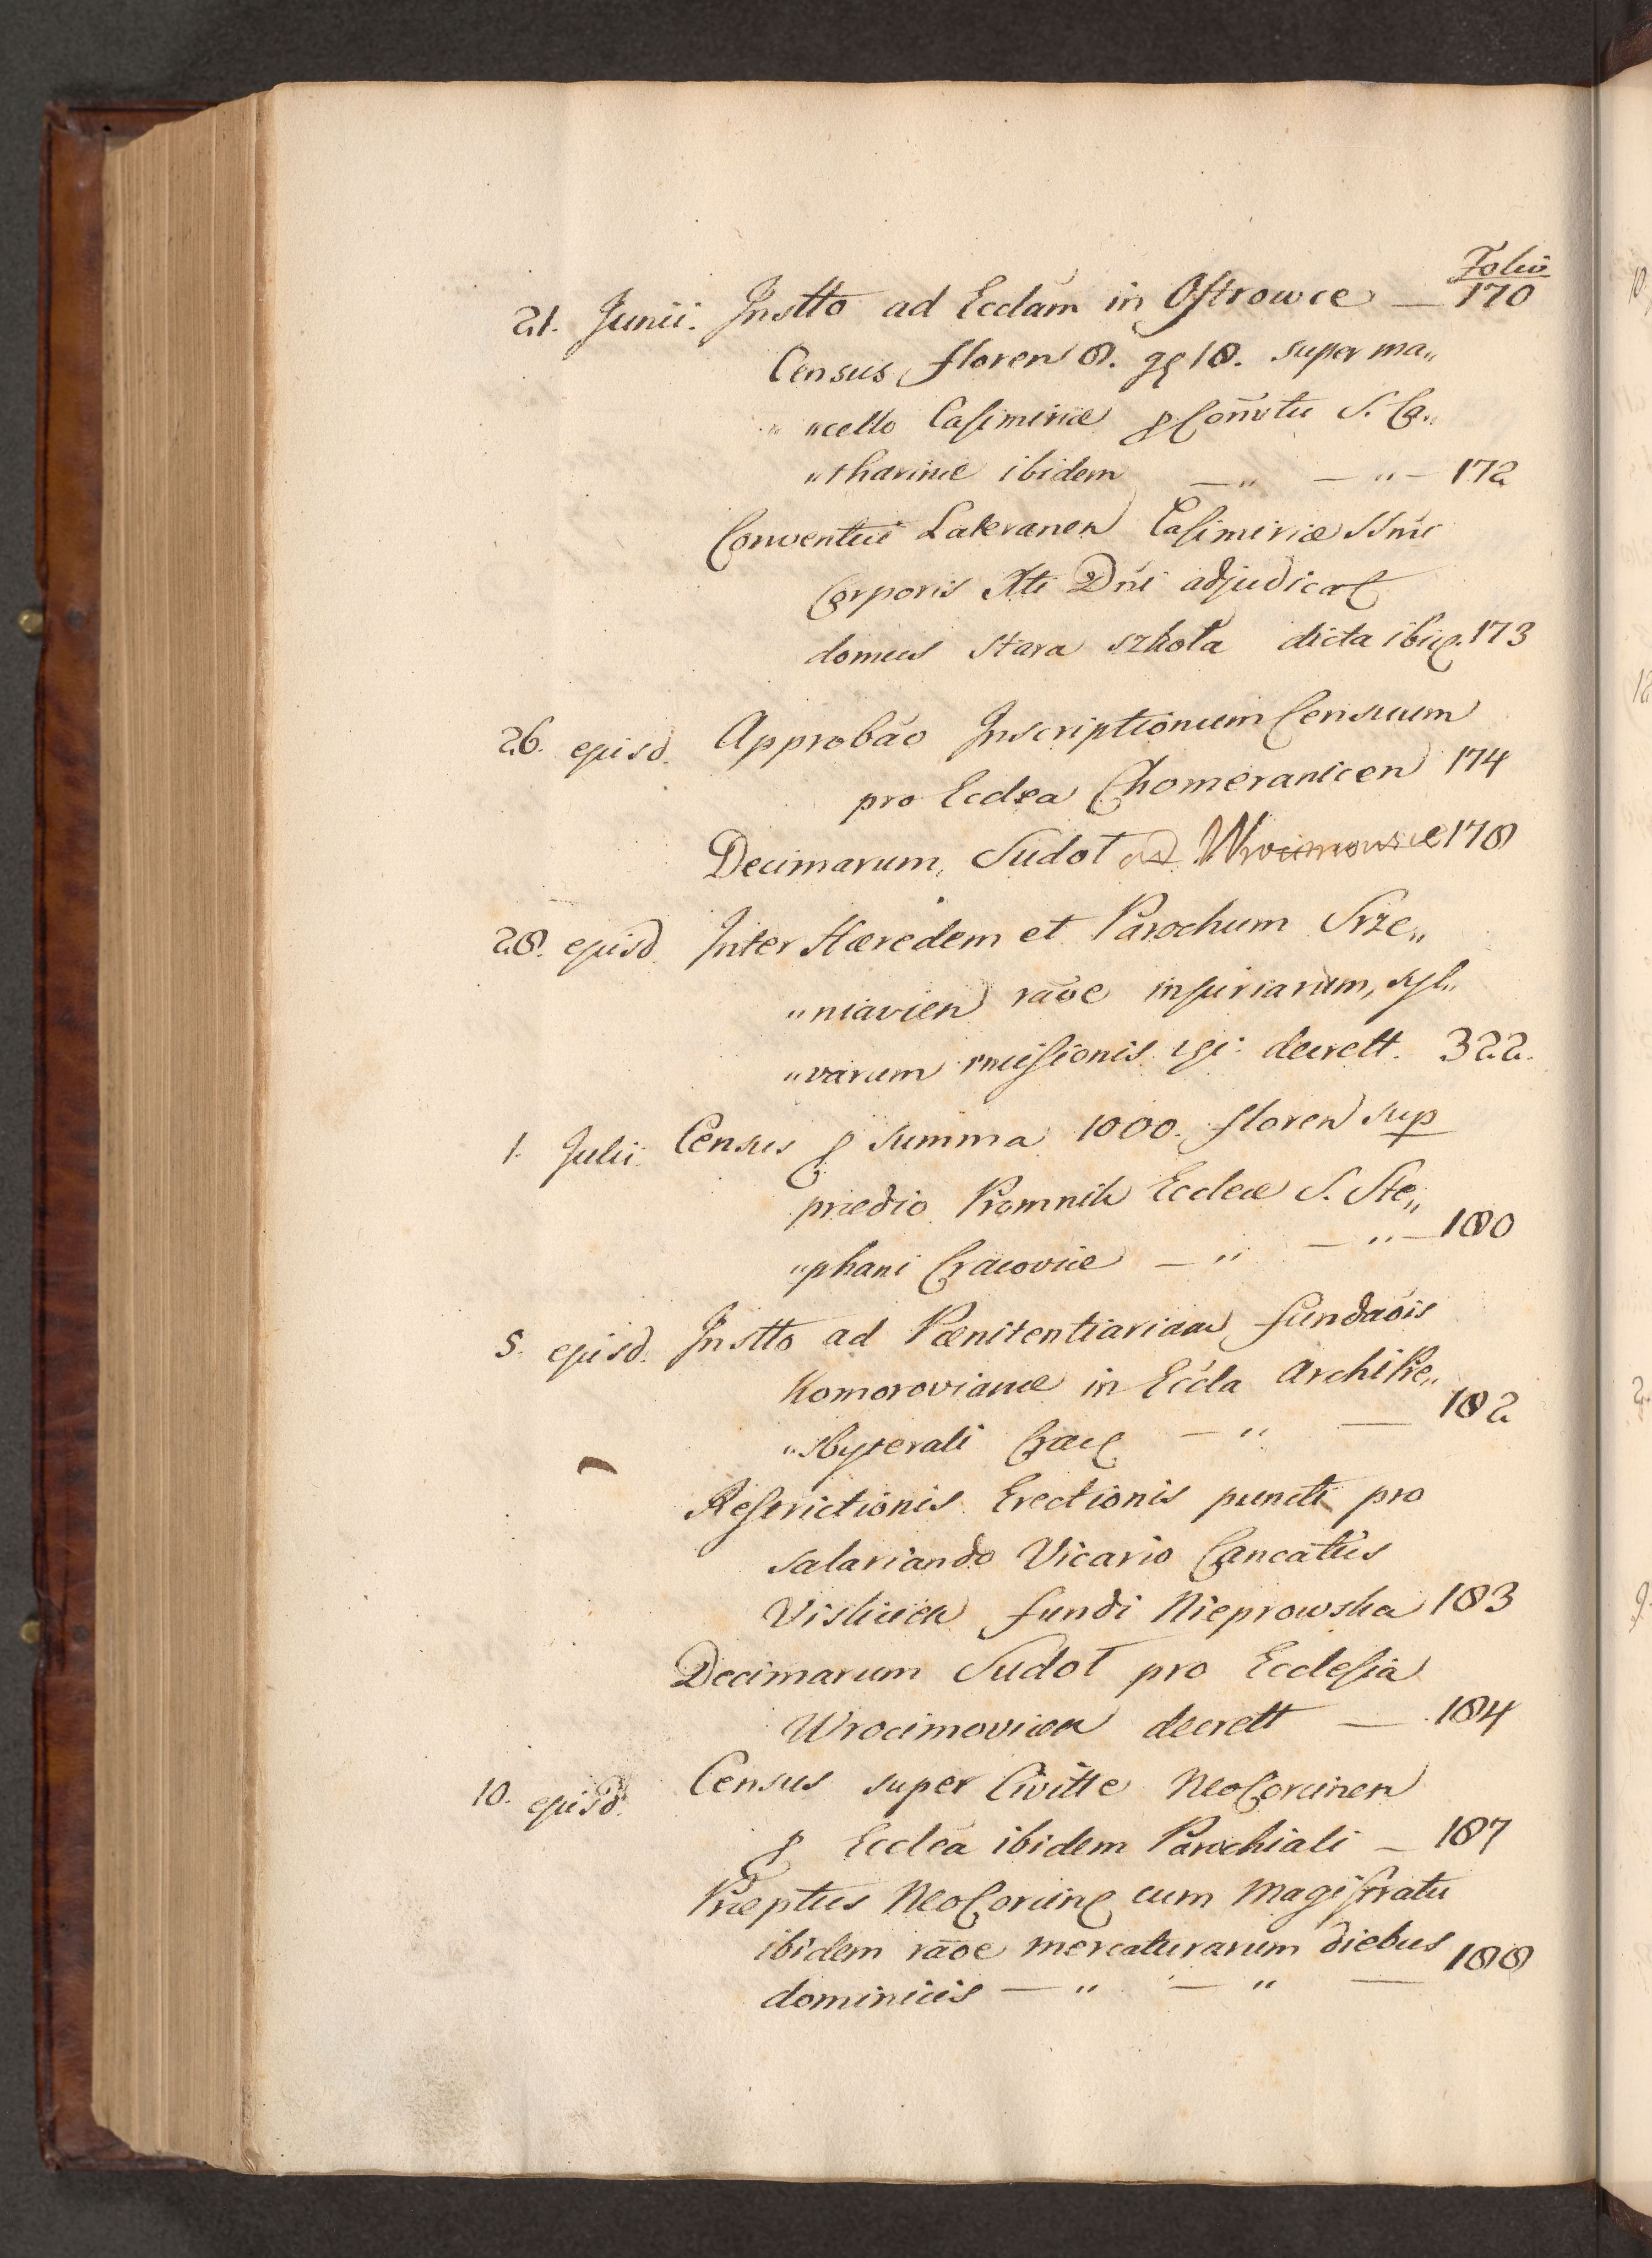 Folio
21. Junii. Instto ad Ecclam in Ostrowce — 170
Census floren 8. gę 18. super ma„
„cello Casimiriæ p Convtu S. Ca„
„tharinæ ibidem — „ — „ — 172
Conventui Lateranen Casimiriæ SSmi
Corporis Xti Dni adjudicat
domus stara szkoła dicta ibid. 173
26. ejusd. Approbao Inscriptionum Censuum
pro Ecclea Chomeranicen 174
Decimarum, Sudoł ad Wrocimowice 178
28. ejusd Inter Hæredem et Parochum Srze„
„niavien raoe injuriarum, syl„
„varum rucisionis decrett. 322.
1. Julii. Census p summa 1000. floren sup
prædio Promnik Ecclæ S. Ste„
„phani Cracoviæ — „ — „ — 180
5. ejusd. Instto ad Pœnitentiariam fundaois
Komorovianæ in Eccla Archipre„
„sbyterali Crac — „ — 182
Restrictionis Erectionis puncti pro
salariando Vicario Cancatus
Vislicien fundi Nieprowska 183
Decimarum Sudoł pro Ecclesia
Wrocimovicen decrett — 184
10. ejusd. Census super Civitte NeoCorcinen
p Ecclea ibidem Parochiali — 187
Præptus NeoCorcin cum Magistratu
ibidem raoe mercaturarum diebus
dominicis — „ — „ — 188